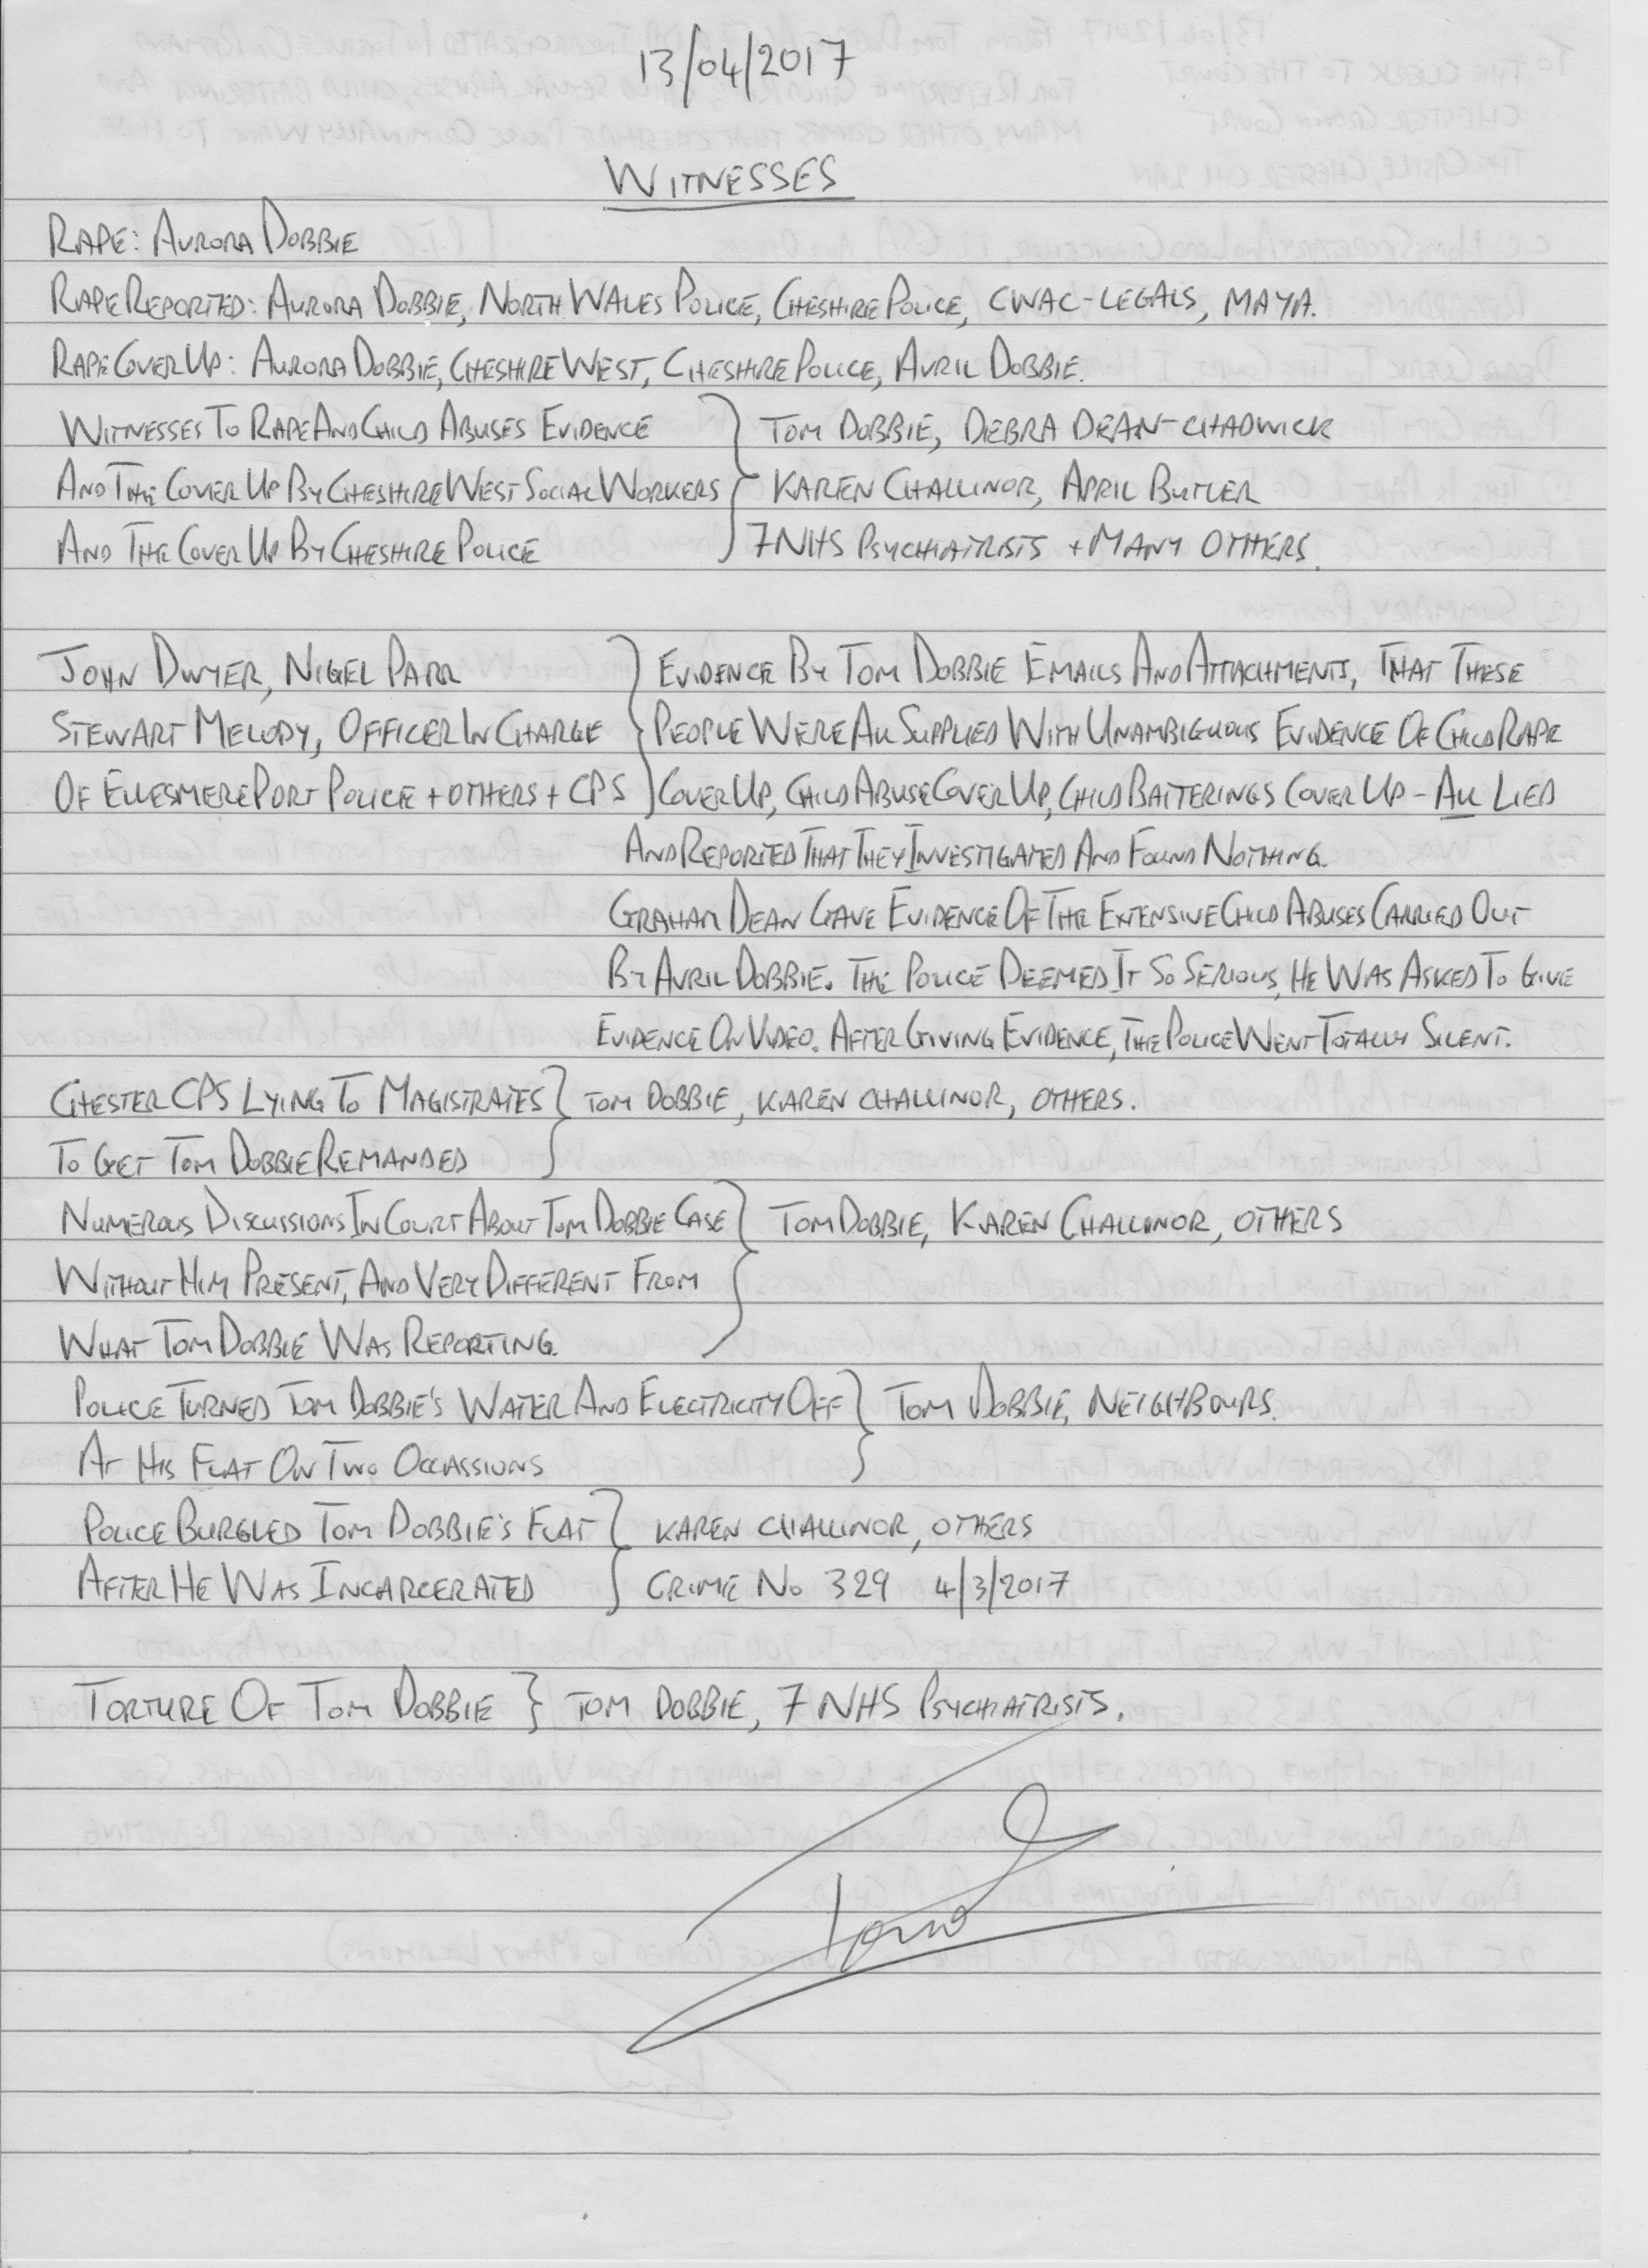 13/04/2017
WITNESSES
RAPE: AURORA DOBBIE
RAPE REPORTED: AURORA DOBBIE, NORTH WALES POLICE, CHESHIRE POLICE, CWAC-LEGALS, MAYA.
RAPE COVER UP: AURORA DOBBIE, CHESHIRE WEST, CHESHIRE POLICE, AVRIL DOBBIE.
WITNESSES TO RAPE AND CHILD ABUSES EVIDENCE } TOM DOBBIE, DEBRA DEAN-CHADWICK
AND THE COVER UP BY CHESHIRE WEST SOCIAL WORKERS } KAREN CHALLINOR, APRIL BUTLER
AND THE COVER UP BY CHESHIRE POLICE } 7 NHS PSYCHIATRISTS + MANY OTHERS.
JOHN DWYER, NIGEL PARR } EVIDENCE BY TOM DOBBIE EMAILS AND ATTACHMENTS, THAT THESE
STEWART MELODY, OFFICER IN CHARGE } PEOPLE WERE ALL SUPPLIED WITH UNAMBIGUOUS EVIDENCE OF CHILD RAPE
OF ELLESMERE PORT POLICE + OTHERS + CPS } COVER UP, CHILD ABUSE COVER UP, CHILD BATTERINGS COVER UP - ALL LIED
AND REPORTED THAT THEY INVESTIGATED AND FOUND NOTHING.
GRAHAM DEAN GAVE EVIDENCE OF THE EXTENSIVE CHILD ABUSES CARRIED OUT
BY AVRIL DOBBIE. THE POLICE DEEMED IT SO SERIOUS, HE WAS ASKED TO GIVE
EVIDENCE ON VIDEO. AFTER GIVING EVIDENCE, THE POLICE WENT TOTALLY SILENT.
CHESTER CPS LYING TO MAGISTRATES } TOM DOBBIE, KAREN CHALLINOR, OTHERS.
TO GET TOM DOBBIE REMANDED
NUMEROUS DISCUSSIONS IN COURT ABOUT TOM DOBBIE CASE } TOM DOBBIE, KAREN CHALLINOR, OTHERS
WITHOUT HIM PRESENT, AND VERY DIFFERENT FROM
WHAT TOM DOBBIE WAS REPORTING.
POLICE TURNED TOM DOBBIE'S WATER AND ELECTRICITY OFF } TOM DOBBIE, NEIGHBOURS.
AT HIS FLAT ON TWO OCCASSIONS
POLICE BURGLED TOM DOBBIE'S FLAT } KAREN CHALLINOR, OTHERS
AFTER HE WAS INCARCERATED } CRIME No 329 4/3/2017
TORTURE OF TOM DOBBIE } TOM DOBBIE, 7 NHS PSYCHIATRISTS.